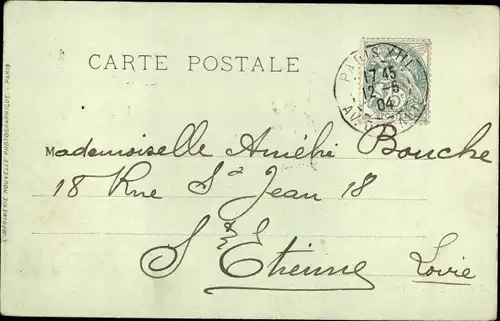 CARTE POSTALE
PARIS XIII
17 45
12 - 5
04
Mademoiselle Amélie Bouche
18 Rue St Jean 18
St Etienne Loire
L'IMPRIMERIE NOUVELLE PHOTOGRAPHIQUE - PARIS